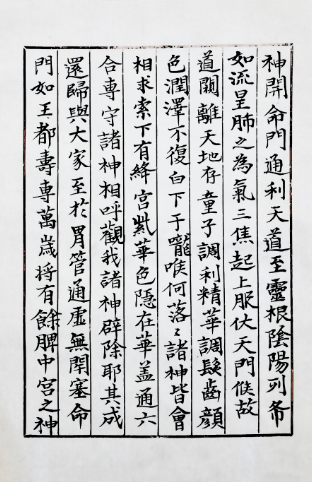 神開命門通利天道至靈根陰陽列布
如流星肺之為氣三焦起上服伏天門候故
道闚離天地存童子調利精華調髮齒顏
色潤澤不復白下于嚨喉何落〻諸神皆會
相求索下有絳宮紫華色隱在華盖通六
合專守諸神相呼觀我諸神辟除耶其成
還歸與大家至於胃管通虛無閇塞命
門如王都壽專萬歲将有餘脾中宮之神